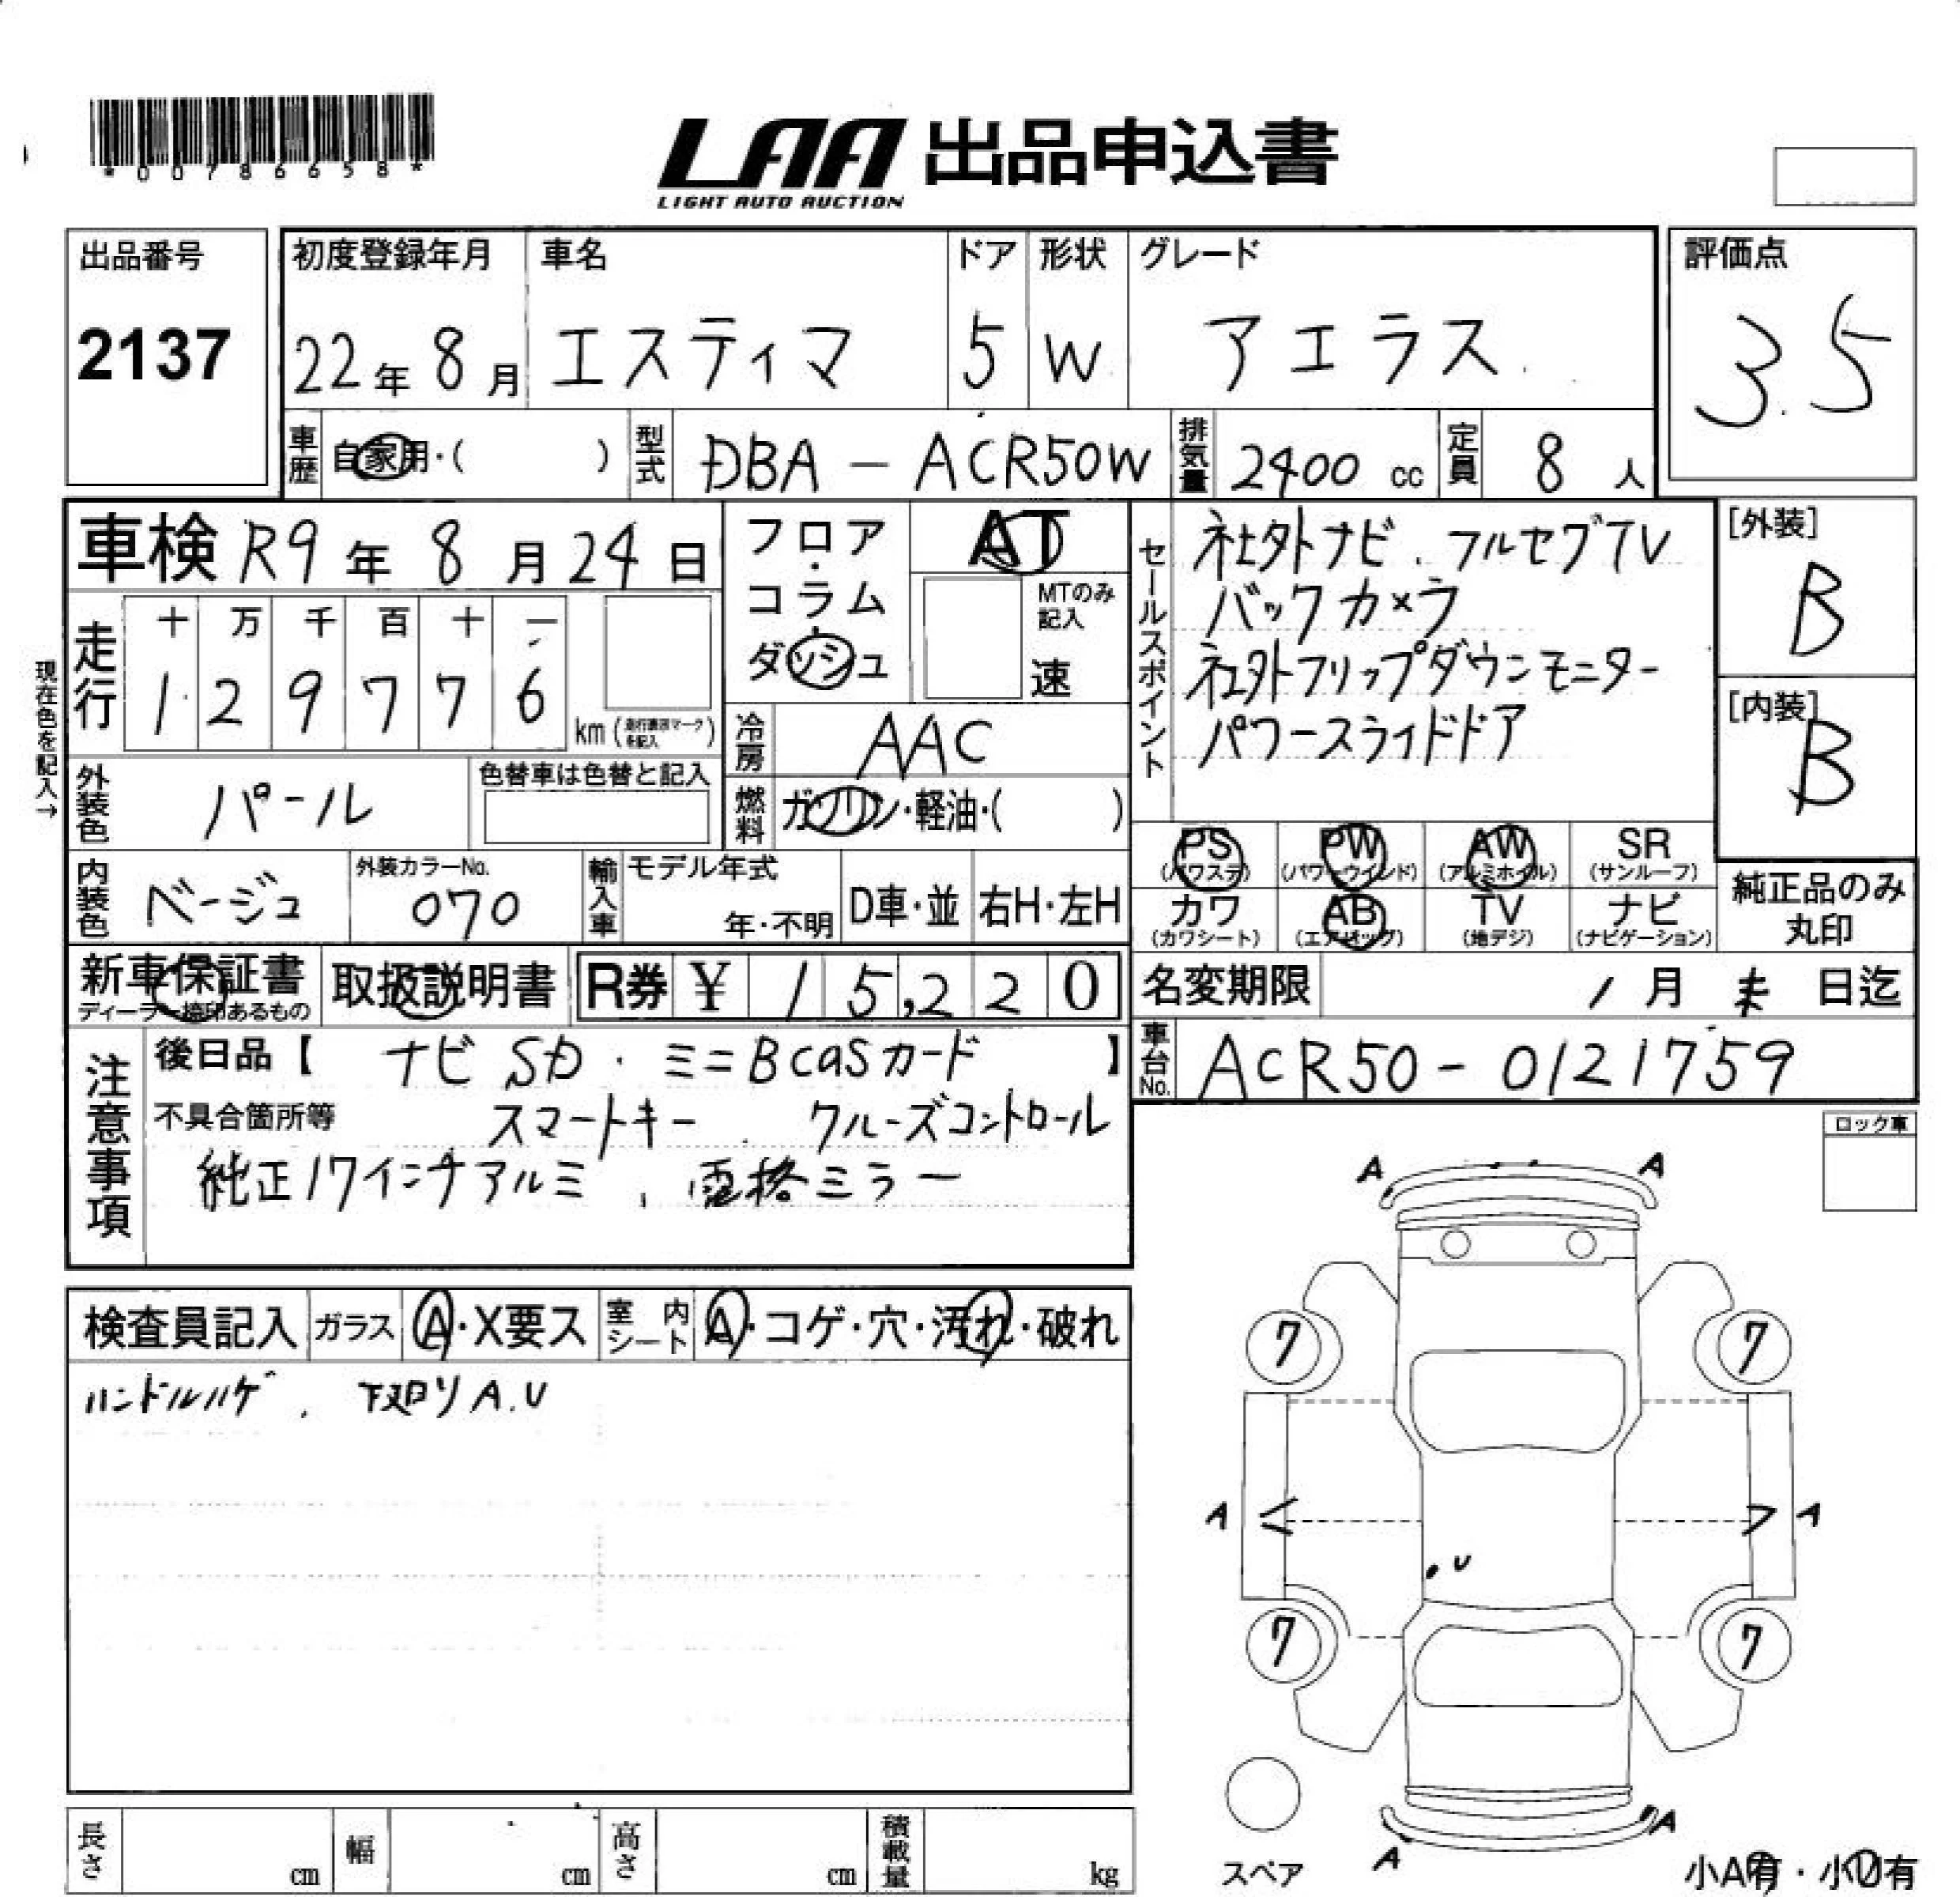 *00786658*
LAA 出品申込書
LIGHT AUTO AUCTION
出品番号 2137
初度登録年月 22年 8月
車名 エスティマ
ドア 5
形状 W
グレード アエラス
評価点 3.5
車歴 自家用・( )
型式 DBA-ACR50W
排気量 2400 cc
定員 8 人
車検 R9年 8月24日
フロア・コラム・ダッシュ
AT
MTのみ記入
速
セールスポイント
社外ナビ.フルセグTV
バックカメラ
社外フリップダウンモニター
パワースライドドア
[外装] B
[内装] B
現在色を記入→
走行 十 万 千 百 十 一
1 2 9 7 7 6 km(走行裏表マークを記入)
冷房 AAC
外装色 パール
色替車は色替と記入
燃料 ガソリン・軽油・( )
PS (パワステ)
PW (パワーウインド)
AW (アルミホイル)
SR (サンルーフ)
カワ (カワシート)
AB (エアバッグ)
TV (地デジ)
ナビ (ナビゲーション)
純正品のみ丸印
内装色 ベージュ
外装カラーNo. 070
輸入車
モデル年式 年・不明
D車・並
右H・左H
新車保証書
ディーラー捺印あるもの
取扱説明書
R券 ¥ 15,220
名変期限 月 日迄
車台No. ACR50-0121759
注意事項
後日品【 ナビSD・ミニBcasカード 】
不具合箇所等 スマートキー . クルーズコントロール
純正17インチアルミ、電格ミラー
ロック車
検査員記入
ガラス A・X要ス
室内シート A・コゲ・穴・汚れ・破れ
ハンドルハゲ、下回りA.U
A A
7 7
A A
U
7 7
A A
スペア
小A有・小U有
長さ cm
幅 cm
高さ cm
積載量 kg